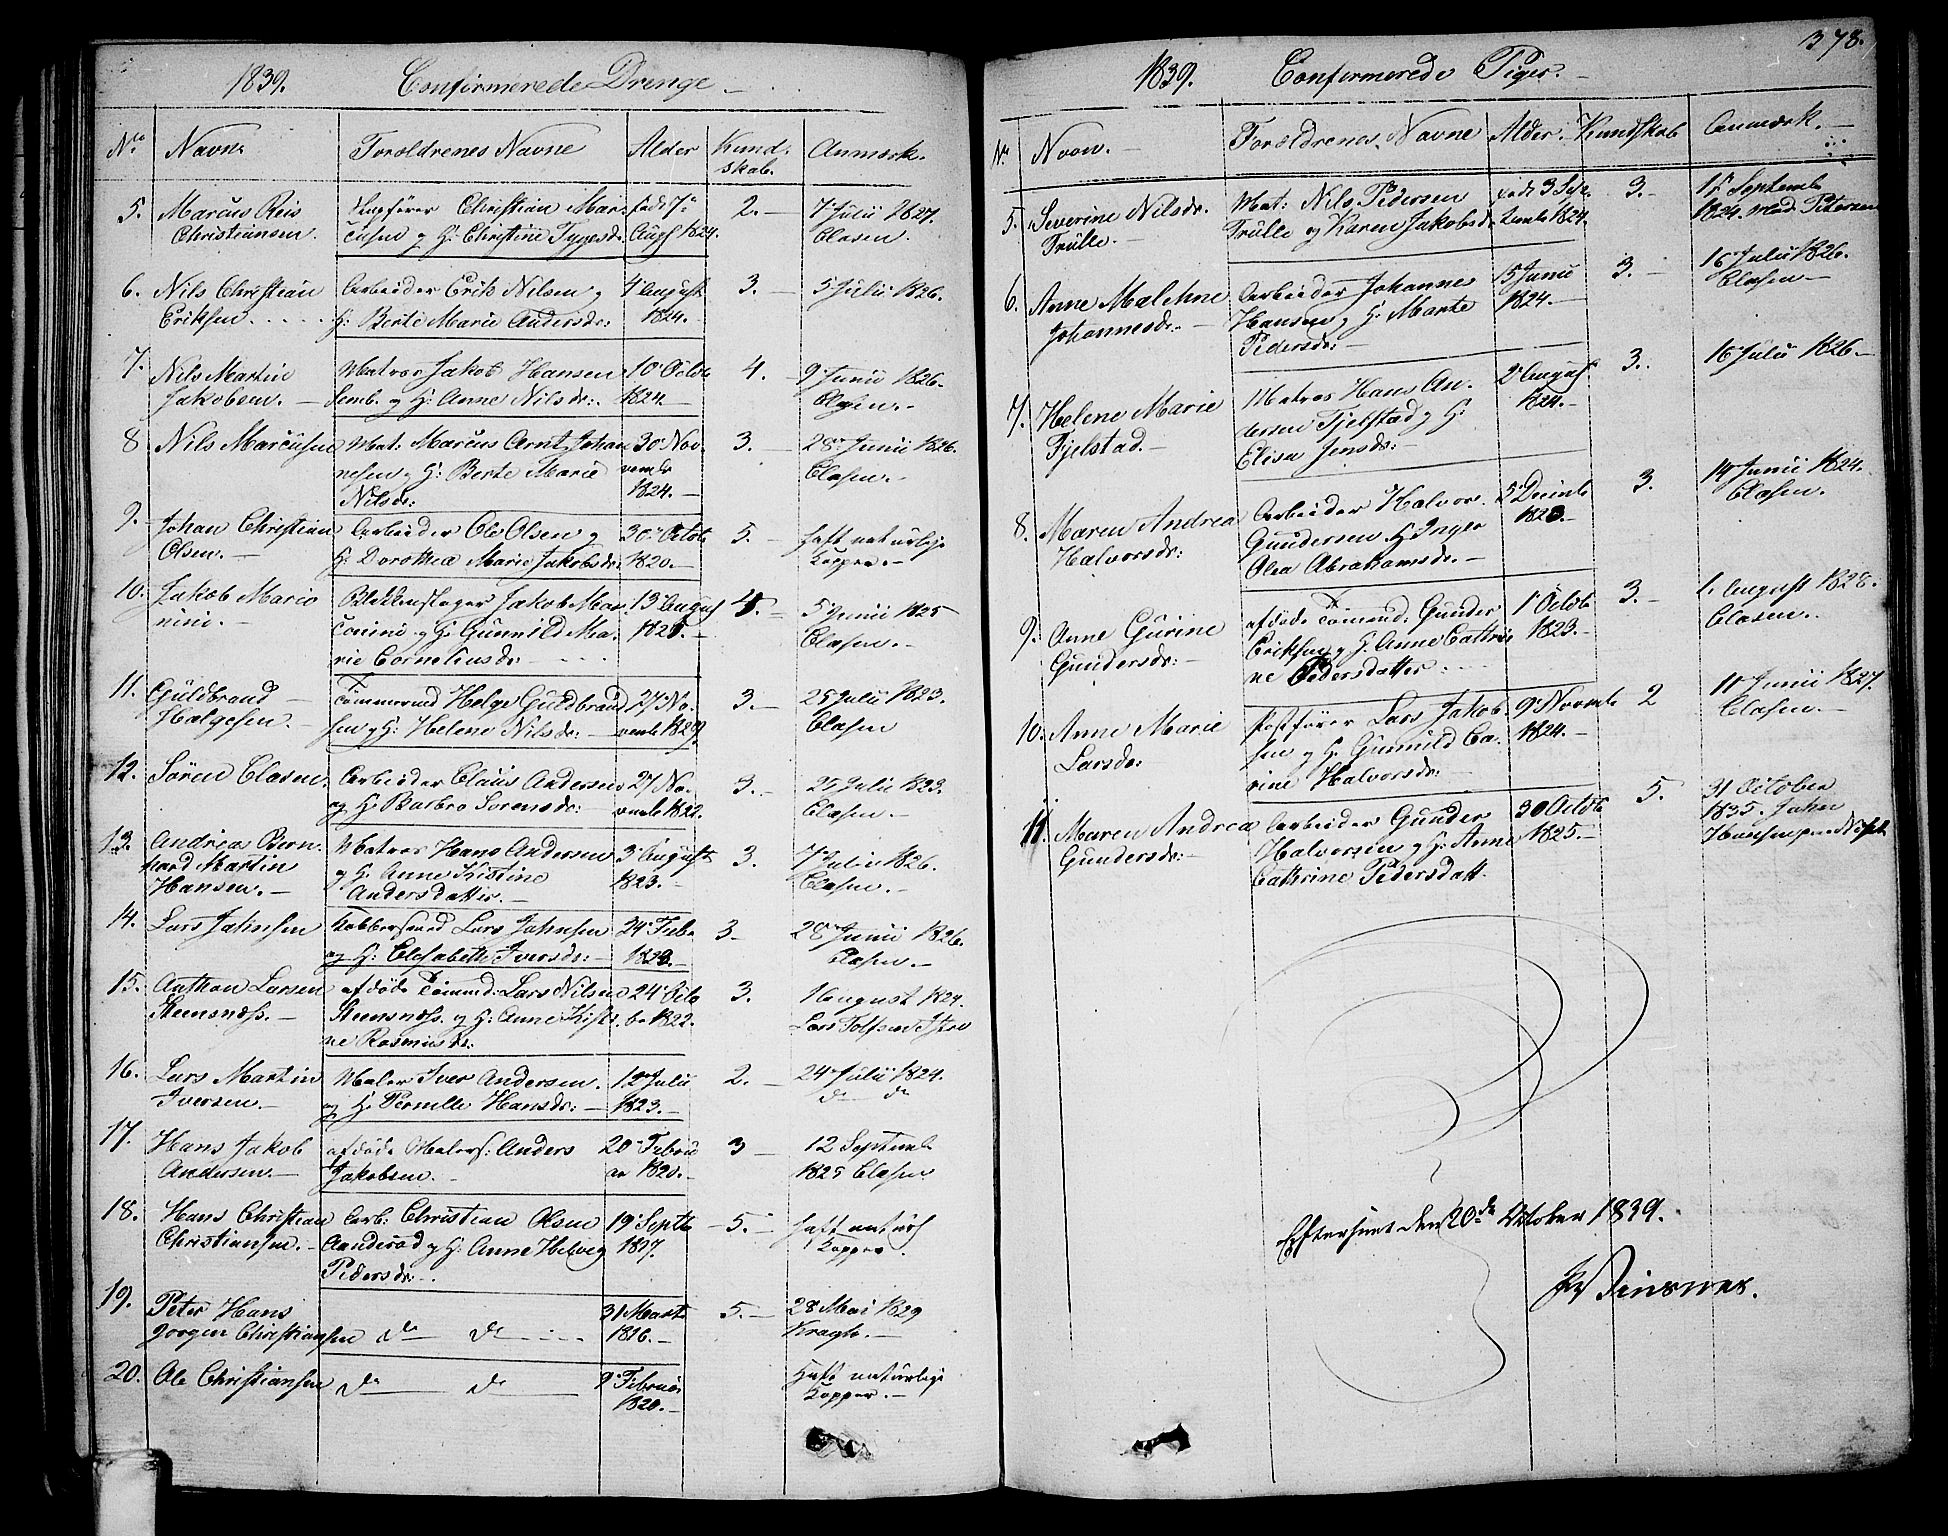 1839. Confirmerede Drenge
No Navn Forældrenes Navne Alder Kundskab. Anmærk.
5. Marcus Reis Christian Mar- 7de 2. 7 Julii 1827.
Christiansen. cusen og H: Christine Tygesdr. Aug 1824. Clasen.
6. Nils Christian Arbeider Erik Nilsen og 4 August 3. 5 Julii 1826.
Eriksen. H: Berte Marie Andersdr: 1824. Clasen.
7. Nils Martin Matros Jakob Hansen 10 Octbr 4. 9 Junii 1826.
Jakobsen. Semb. og H: Anne Nilsdr: 1824. Clasen.
8 Nils Marcusen Mat: Marcus Arnt Johan 30 Nov- 3. 28 Junii 1826.
nesen og H: Berte Marie vembr Clasen.
Nilsdr: 1824.
9. Johan Christian Arbeider Ole Olsen og 30 Octob 5. haft naturlige
Olsen. H: Dorothea Marie Jakobsdr: 1820. Kopper.
10. Jakob Mario Blikkenslager Jakob Mar- 13 August 4. 5 Junii 1825
nini. og H: Gunnild Ma- Clasen.
rie Corneliusdr
11. Guldbrand Tømmermd Helge Guldbrand 27 No- 3. 25 Julii 1823.
Helgesen. sen og H: Helene Nilsdr: vembr Clasen
12. Søren Clasen. Arbeider Claus Andersen 27 No- 3. 25 Julii 1823.
og H: Barbro Sorensdr: vembr 1822. Clasen.
13. Andreas Bern- Matros Hans Andersen 3 August 3. 7 Julii 1826.
hard Martin og H: Anne Kistine 1823. Clasen.
Hansen. Andersdatter.
14. Lars Jahnsen Lars Jahnsen 24 Feb. 3 28 Junii 1826.
og H: Elisabeth Iversdr: 1823. Clasen.
15. Anthon Larsen afdøde Tømmd: Lars Nilsen 24 Octo 3. August 1824.
Steensnæss. Steensnæss. og H: Anne Kisti- br 1822. Lars
ne Rasmusdr:
16. Lars Martin Maler Iver Andersen. 12 Julii 2. 24 Julii 1824.
Iversen. og H: Pernille Hansdr: 1823. do do
17. Hans Jakob afdøde Anders 20 Febru 3 12 Septembr
Andersen. Jakobsen. ar 1820. 1825 Clasen.
18. Hans Christian Arb: Christian Olsen 19 Septbr 5. haft naturl
Christiansen. og H: Anne Helvig 1817. Kopper.
Pedersdr:
19. Peter Hans 31 Marts 5. 28 Mai 1829
Jørgen Christiansen do do 1816. Kragh.
20. Ole Christiansen do do 9 Februar haft naturlige
1820. Kopper.
378.
1839. Confirmerede Piger.
No Navn. Forældrenes Navne Alder. Kundskab Anmærk.
5. Severine Nilsdr. Mat: Nils Pedersen født 3 Sep- 3. Septemb
Trulle. Trulle og Karen Jakobsdr tembr 1824. 1824. Mad. Petersen
6. Anne Malehne Arbeider Johannes 15 Junii 3. 16 Julii 1826.
Johannesdr. Hansen og H: Marte 1824. Clasen
Pedersdr:
7. Helene Marie Matros Hans An- 2 August 3. 16 Julii 1826
Fjelstad. dersen Fjelstad og H: 1824.
Elisa Jensdr:
8. Maren Andrea Arbeider Halvor 5 Decembr 3. 14 Junii 1824.
Halvorsdr: Gundersen og H: Inger 1823. Clasen.
Olea Abrahamsdr.
9. Anne Gurine afdøde Tømmd: Gunder 1 Octobr 3. 1. August 1828.
Gundersdr: Eriksen og H: Anne Cathri- 1823. Clasen.
ne Pedersdatter
10. Anne Marie Postfører Lars Jakob- 9 Novembr 2 11 Junii 1827.
Larsdr sen og H: Gunnild Ca- 1824. Clasen.
rine Halvorsdr:
11. Maren Andrea Arbeider Gunder 30 Octobr 5. 31 October
Gundersdr: Halvorsen og H: Anne 1825. 1835. Jahn
Cathrine Pedersdatt.
Efterseet den 20de October 1839.